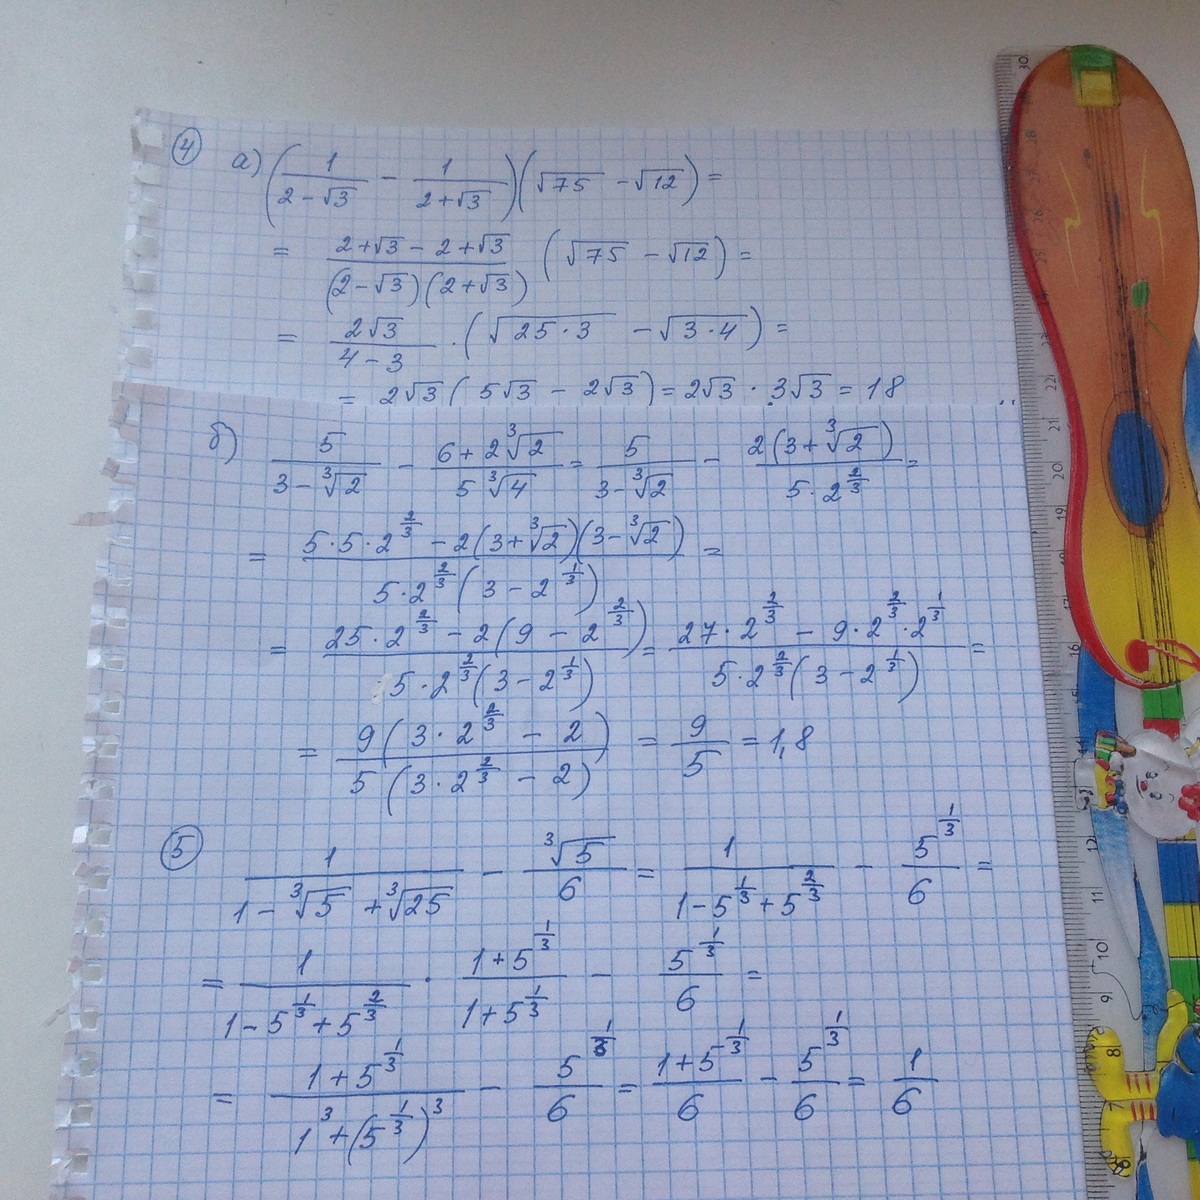 ④ а) (1/(2-√3) - 1/(2+√3))(√75 - √12) =
= (2+√3-2+√3)/((2-√3)(2+√3)) (√75 - √12) =
= 2√3/(4-3) · (√(25·3) - √(3·4)) =
= 2√3(5√3 - 2√3) = 2√3 · 3√3 = 18
б) 5/(3-∛2) - (6+2∛2)/(5∛4) = 5/(3-∛2) - 2(3+∛2)/(5·2^(2/3)) =
= (5·5·2^(2/3) - 2(3+∛2)(3-∛2))/(5·2^(2/3)(3-2^(1/3))) =
= (25·2^(2/3) - 2(9-2^(2/3)))/(5·2^(2/3)(3-2^(1/3))) = (27·2^(2/3) - 9·2^(2/3)·2^(1/3))/(5·2^(2/3)(3-2^(1/3))) =
= 9(3·2^(2/3) - 2)/(5(3·2^(2/3) - 2)) = 9/5 = 1,8
⑤ 1/(1-∛5+∛25) - ∛5/6 = 1/(1-5^(1/3)+5^(2/3)) - 5^(1/3)/6 =
= 1/(1-5^(1/3)+5^(2/3)) · (1+5^(1/3))/(1+5^(1/3)) - 5^(1/3)/6 =
= (1+5^(1/3))/(1^3+(5^(1/3))^3) - 5^(1/3)/6 = (1+5^(1/3))/6 - 5^(1/3)/6 = 1/6